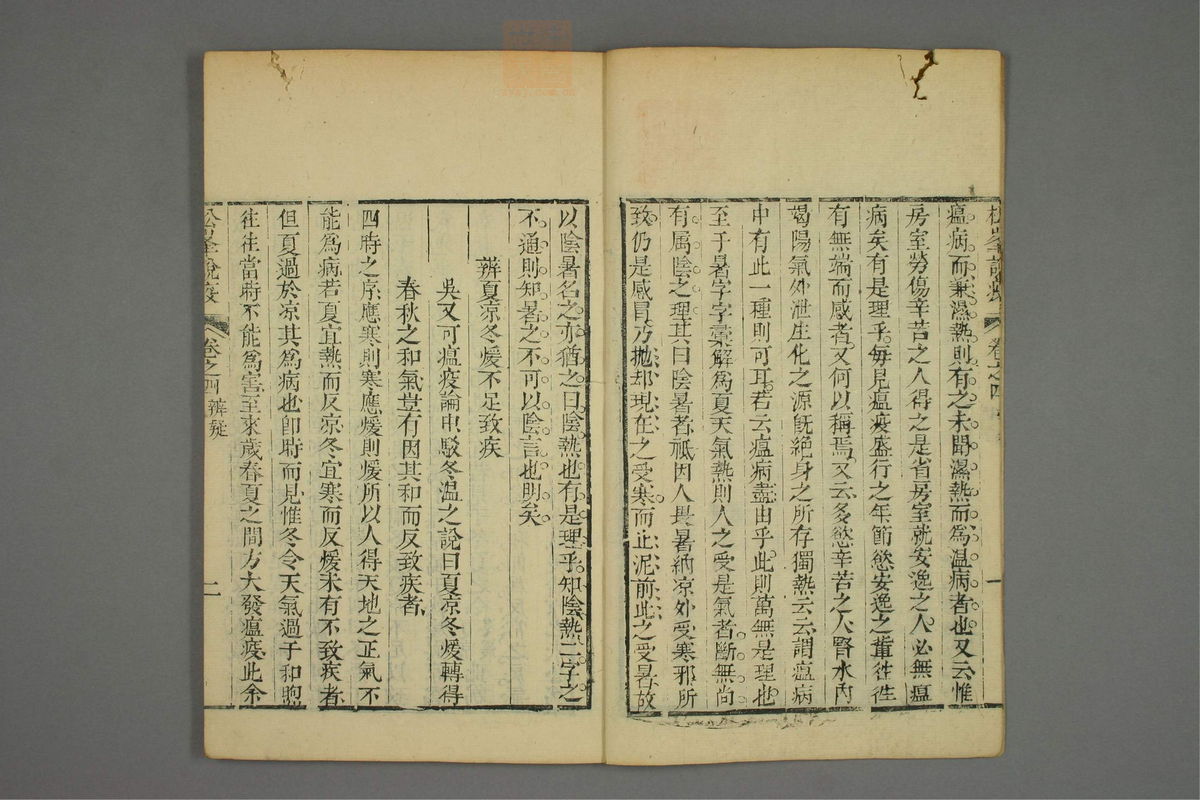 松峯說疫 卷之四 一
瘟病而兼濕熱則有之未聞濕熱而爲温病者也又云惟
房室勞傷辛苦之人得之是省房室就安逸之人必無瘟
病矣有是理乎每見瘟疫盛行之年節慾安逸之輩徃徃
有無端而感者又何以稱焉又云多慾辛苦之人腎水內
竭陽氣外泄生化之源旣絕身之所存獨熱云云謂瘟病
中有此一種則可耳若云瘟病盡由乎此則萬無是理也
至于暑字字彙解爲夏天氣熱則人之受是氣者斷無尚
有屬陰之理其曰陰暑者祇因人畏暑納凉外受寒邪所
致仍是感冐乃拋却現在之受寒而止泥前此之受暑故
以陰暑名之亦猶之曰陰熱也有是理乎知陰熱二字之
不通則知暑之不可以陰言也明矣
辨夏凉冬煖不足致疾
吳又可瘟疫論中駁冬温之說曰夏凉冬煖轉得
春秋之和氣豈有因其和而反致疾者
四時之序應寒則寒應煖則煖所以人得天地之正氣不
能爲病若夏宜熱而反凉冬宜寒而反煖未有不致疾者
但夏過於凉其爲病也卽時而見惟冬令天氣過于和煦
往往當時不能爲害至來歲春夏之間方大發瘟疫此余
松峯說疫 卷之四 辨疑 二